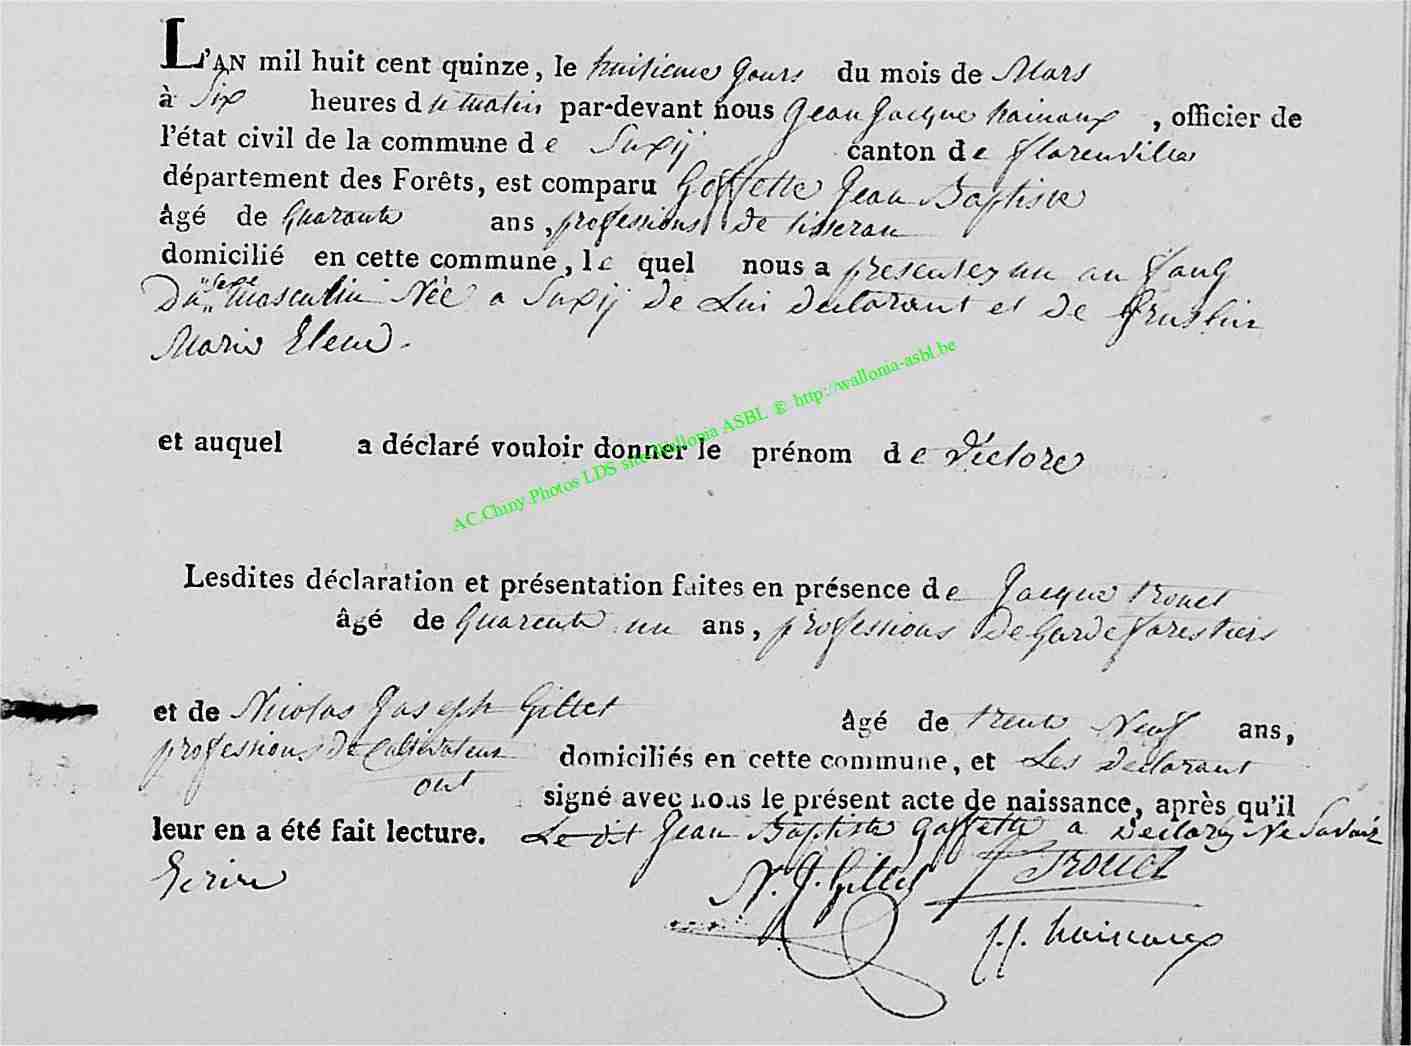 L'AN mil huit cent quinze, le huitieme Jours du mois de Mars
à Six heures du matin par-devant nous Jean Jacque hainaux, officier de
l'état civil de la commune de Suxÿ canton de florenville
département des Forêts, est comparu Goffette Jean Baptiste
âgé de Quarante ans, professions de tisseran
domicilié en cette commune, le quel nous a presentez un an fang
Du sexe masculin Née a Suxÿ de Lui declarant et de
Marie Elene.
et auquel a déclaré vouloir donner le prénom de Victore
AC.Chiny.Photos LDS site Wallonia ASBL © http://wallonia-asbl.be
Lesdites déclaration et présentation faites en présence de Jacque trouet
âgé de Quarente un ans, professions De Garde forestiers
et de Nicolas Joseph Gillet âgé de trente Neuf ans,
professions De Cultivateur domiciliés en cette commune, et Les Declarant
ont signé avec nous le présent acte de naissance, après qu'il
leur en a été fait lecture. Le dit Jean Baptiste Goffette a Declarez Ne Savoir
Ecrire
N. J. Gillet J TROUET
J. J. hainaux